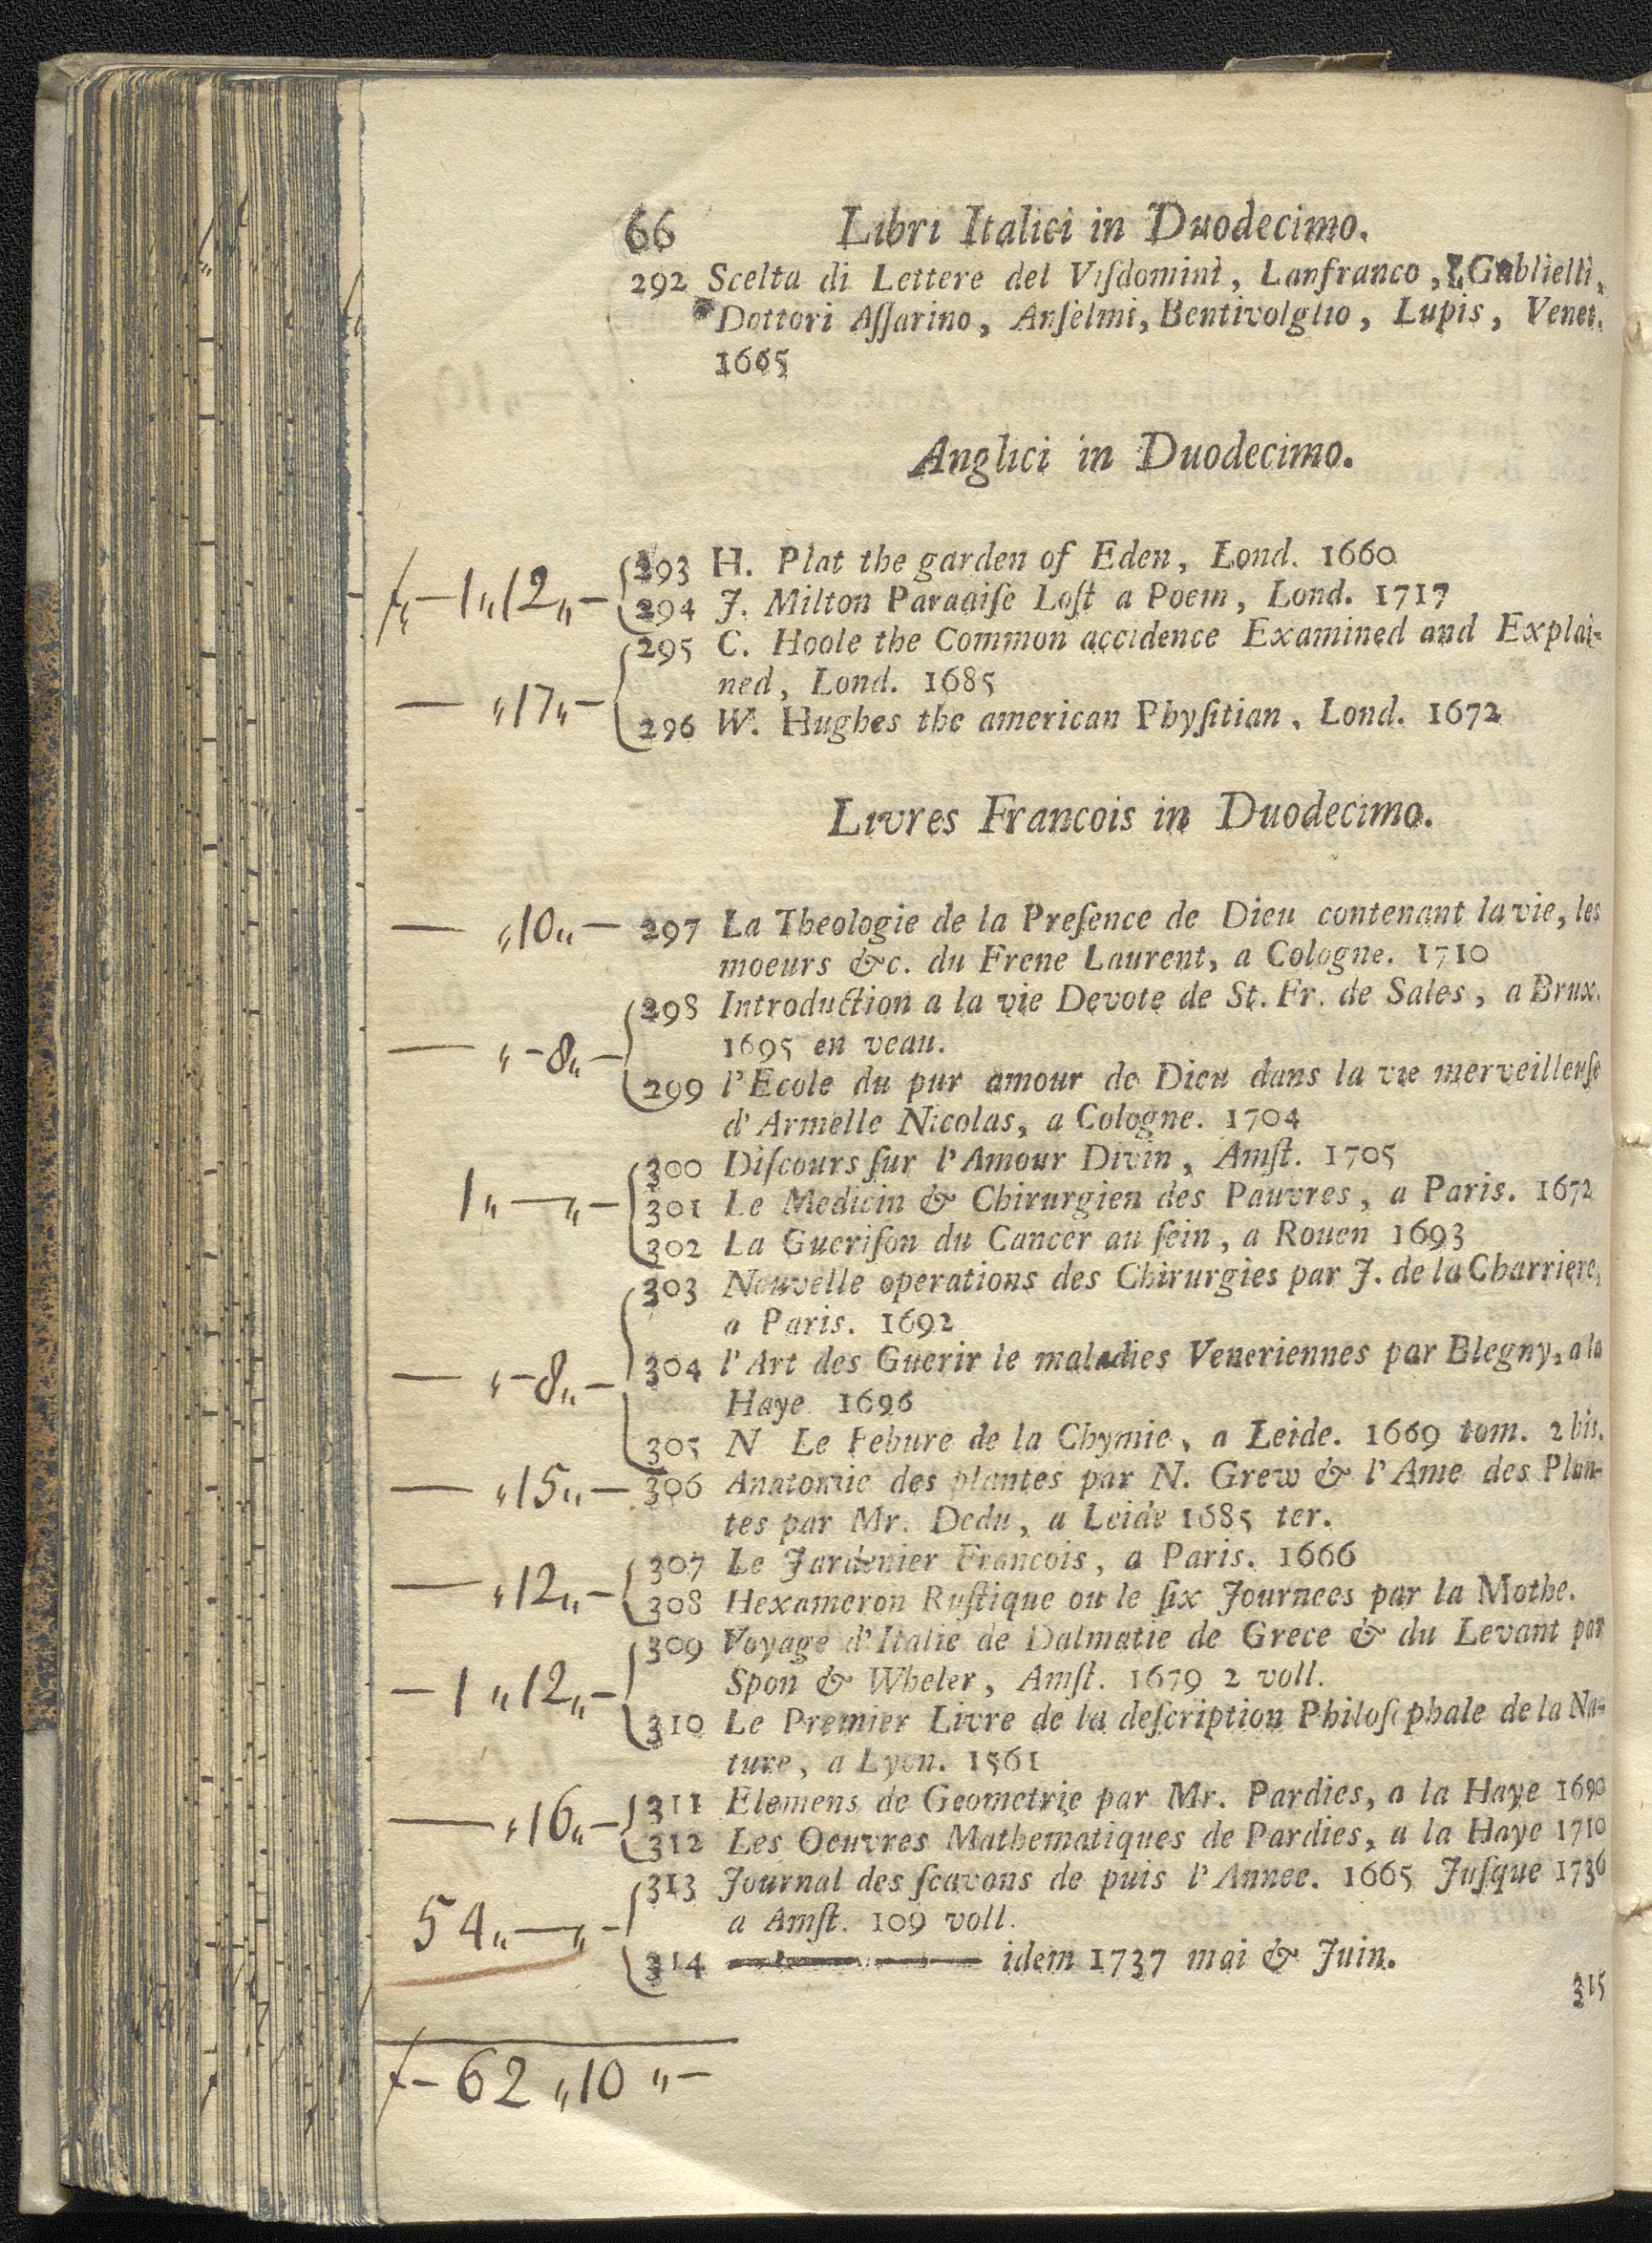 66 Libri Italici in Duodecimo.
292 Scelta di Lettere del Viſdomini, Lanfranco, Gablielli,
Dottori Aſſarino, Anſelmi, Bentivolglio, Lupis, Venet.
1665
Anglici in Duodecimo.
293 H. Plat the garden of Eden, Lond. 1660
f - 1 „ 12 „ -
294 J. Milton Paradiſe Loſt a Poem, Lond. 1717
295 C. Hoole the Common accidence Examined and Explai-
ned, Lond. 1685
— „ 17 „ -
296 W. Hughes the american Phyſitian, Lond. 1672
Livres Francois in Duodecimo.
— „ 10 „ - 297 La Theologie de la Preſence de Dieu contenant la vie, les
moeurs &c. du Frene Laurent, a Cologne. 1710
298 Introduction a la vie Devote de St. Fr. de Sales, a Brux.
1695 en veau.
— „ - 8 „ -
299 l'Ecole du pur amour de Dieu dans la vie merveilleuſe
d'Armelle Nicolas, a Cologne. 1704
300 Diſcours ſur l'Amour Divin, Amſt. 1705
1 „ — „ - 301 Le Medicin & Chirurgien des Pauvres, a Paris. 1672
302 La Gueriſon du Cancer au ſein, a Rouen 1693
303 Nouvelle operations des Chirurgies par J. de la Charriere,
a Paris. 1692
304 l'Art des Guerir le maladies Veneriennes par Blegny, a la
— „ - 8 „ -
Haye 1696
305 N Le Febure de la Chymie, a Leide. 1669 tom. 2 bis.
— „ 15 „ - 306 Anatomie des plantes par N. Grew & l'Ame des Plan-
tes par Mr. Dedu, a Leide 1685 ter.
307 Le Jardenier Francois, a Paris. 1666
— „ 12 „ -
308 Hexameron Ruſtique ou le ſix Journees par la Mothe.
309 Voyage d'Italie de Dalmatie de Grece & du Levant par
Spon & Wheler, Amſt. 1679 2 voll.
— 1 „ 12 „ -
310 Le Premier Livre de la deſcription Philoſophale de la Na-
ture, a Lyon. 1561
311 Elemens de Geometrie par Mr. Pardies, a la Haye 1690
— „ 16 „ -
312 Les Oeuvres Mathematiques de Pardies, a la Haye 1710
313 Journal des ſcavans de puis l'Annee. 1665 Juſque 1736
a Amſt. 109 voll.
54 „ — „ -
314 ——— idem 1737 mai & Juin.
315
f - 62 „ 10 „ -